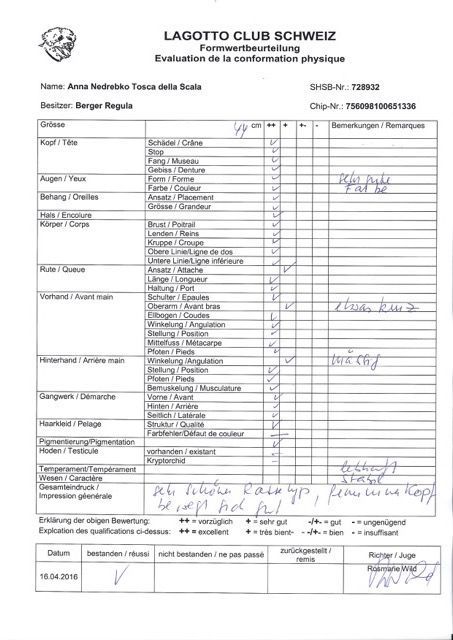 LAGOTTO CLUB SCHWEIZ
Formwertbeurteilung
Evaluation de la conformation physique
Name: Anna Nedrebko Tosca della Scala SHSB-Nr.: 728932
Besitzer: Berger Regula Chip-Nr.: 756098100651336
Grösse 44 cm ++ + +- - Bemerkungen / Remarques
Kopf / Tête Schädel / Crâne ✓
Stop ✓
Fang / Museau ✓
Gebiss / Denture ✓
Augen / Yeux Form / Forme ✓ sehr gute
Farbe / Couleur ✓ Farbe
Behang / Oreilles Ansatz / Placement ✓
Grösse / Grandeur ✓
Hals / Encolure ✓
Körper / Corps Brust / Poitrail ✓
Lenden / Reins ✓
Kruppe / Croupe ✓
Obere Linie/Ligne de dos ✓
Untere Linie/Ligne inférieure ✓
Rute / Queue Ansatz / Attache ✓
Länge / Longueur ✓
Haltung / Port ✓
Vorhand / Avant main Schulter / Epaules ✓
Oberarm / Avant bras ✓ etwas kurz
Ellbogen / Coudes ✓
Winkelung / Angulation ✓
Stellung / Position ✓
Mittelfuss / Métacarpe ✓
Pfoten / Pieds ✓
Hinterhand / Arrière main Winkelung /Angulation ✓ mässig
Stellung / Position ✓
Pfoten / Pieds ✓
Bemuskelung / Musculature ✓
Gangwerk / Démarche Vorne / Avant ✓
Hinten / Arrière ✓
Seitlich / Latérale ✓
Haarkleid / Pelage Struktur / Qualité ✓
Farbfehler/Défaut de couleur —
Pigmentierung/Pigmentation ✓
Hoden / Testicule vorhanden / existant —
Kryptorchid —
Temperament/Tempérament lebhaft
Wesen / Caractère stabil
Gesamteindruck / sehr schöner Rassetyp, femininer Kopf
Impression géenérale bewegt sich gut
Erklärung der obigen Bewertung: ++ = vorzüglich + = sehr gut -/+- = gut - = ungenügend
Explcation des qualifications ci-dessus: ++ = excellent + = très bient- -/+- = bien - = insuffisant
Datum bestanden / réussi nicht bestanden / ne pas passé zurückgestellt / remis Richter / Juge
16.04.2016 ✓ Rosmarie Wild